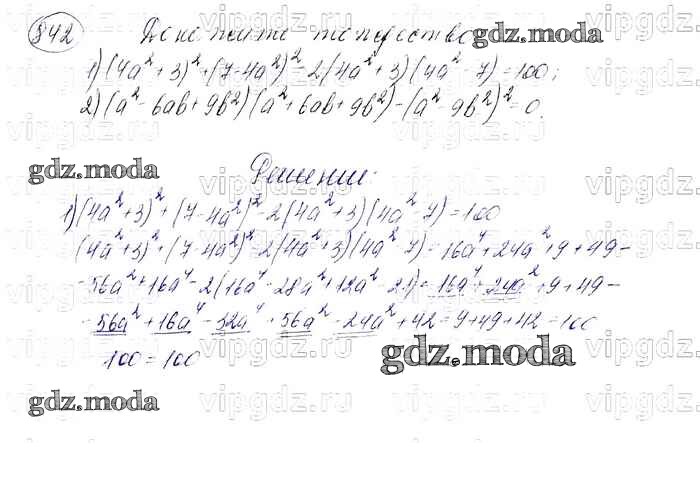 842 Докажите тождество gdz.moda
1) (4a²+3)²+(7-4a²)²-2(4a²+3)(4a²-7)=100;
2) (a²-6ab+9b²)(a²+6ab+9b²)-(a²-9b²)²=0.
gdz.moda Решение:
1) (4a²+3)²+(7-4a²)²-2(4a²+3)(4a²-7)=100
(4a²+3)²+(7-4a²)²-2(4a²+3)(4a²-7)=16a⁴+24a²+9+49-
-56a²+16a⁴-2(16a⁴-28a²+12a²-21)=16a⁴+24a²+9+49-
-56a²+16a⁴-32a⁴+56a²-24a²+42=9+49+42=100
100=100 gdz.moda
gdz.moda